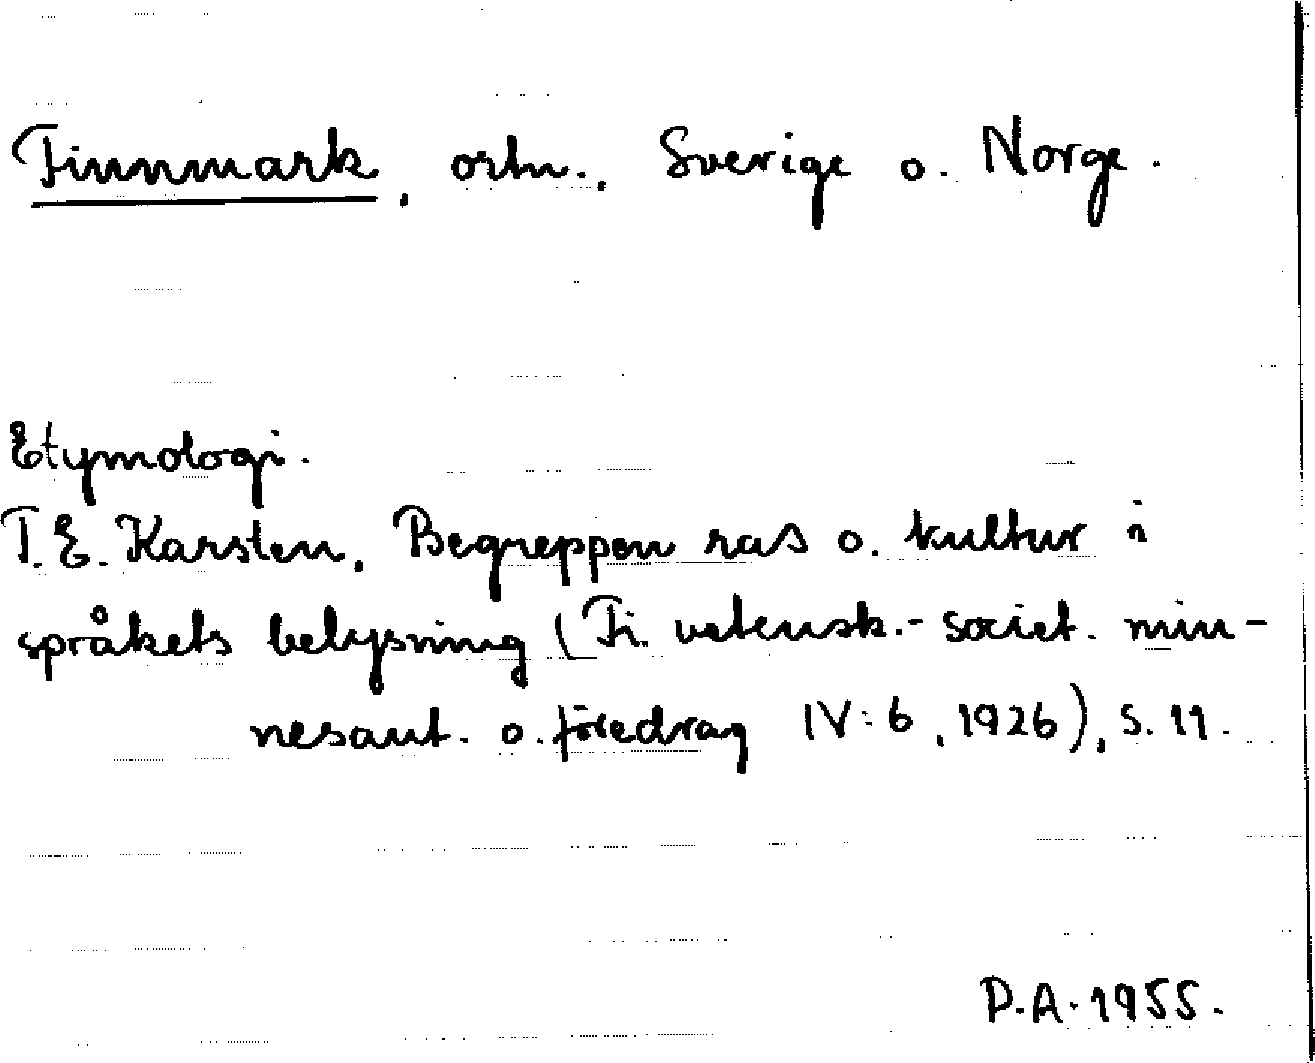 Finnmark, ortn., Sverige o. Norge.
Etymologi.
T.E. Karsten, Begreppen ras o. kultur i
språkets belysning (Fi. vetensk.-societ. min-
nesant. o. föredrag IV:6, 1926), s. 11.
P.A. 1955.